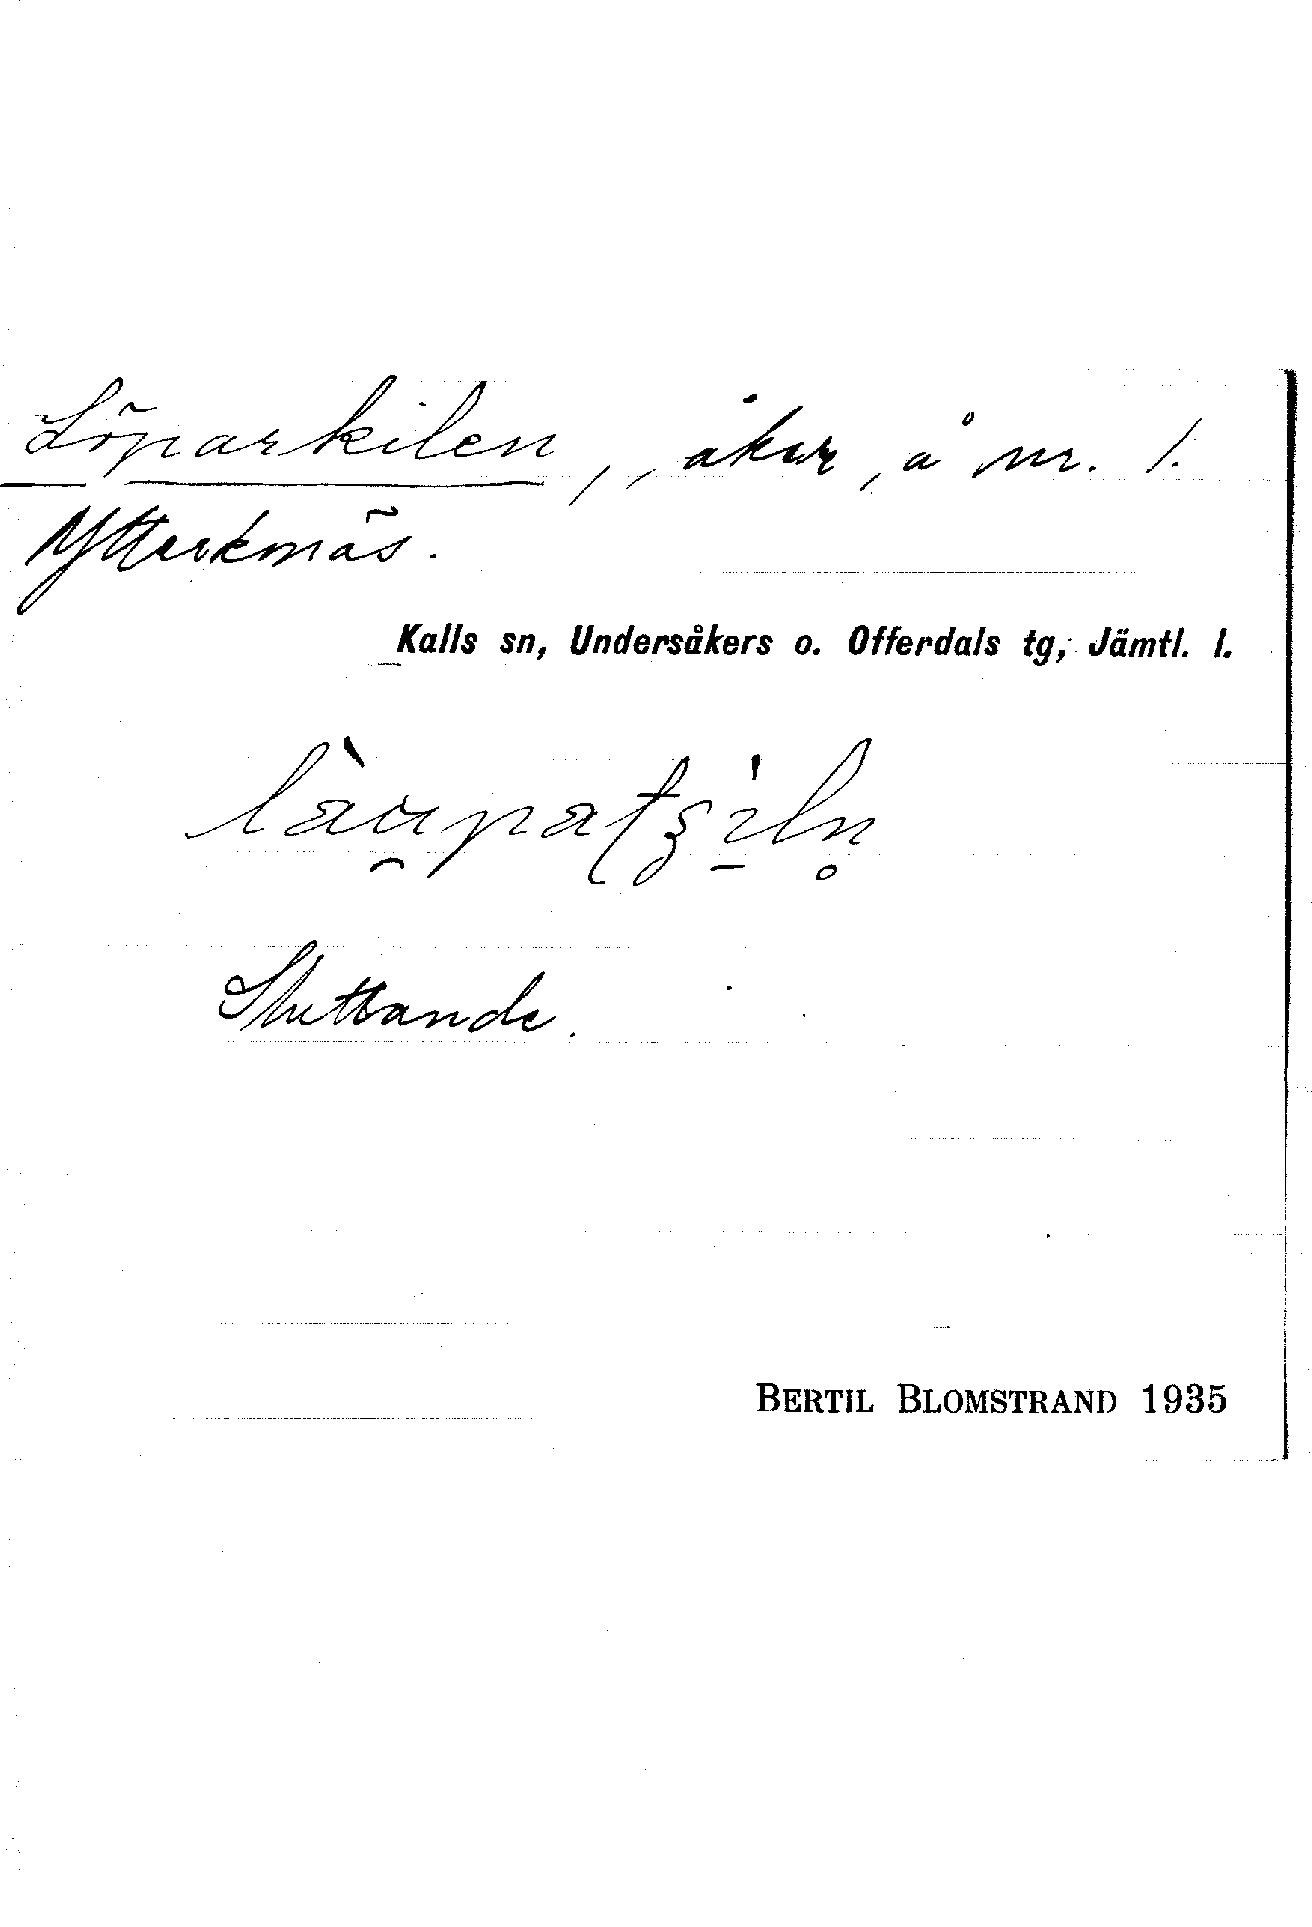 Löparkilen, åker, å nr. 1.
Ytterkönäs.
Kalls sn, Undersåkers o. Offerdals tg, Jämtl. l.
Sluttande.
BERTIL BLOMSTRAND 1935